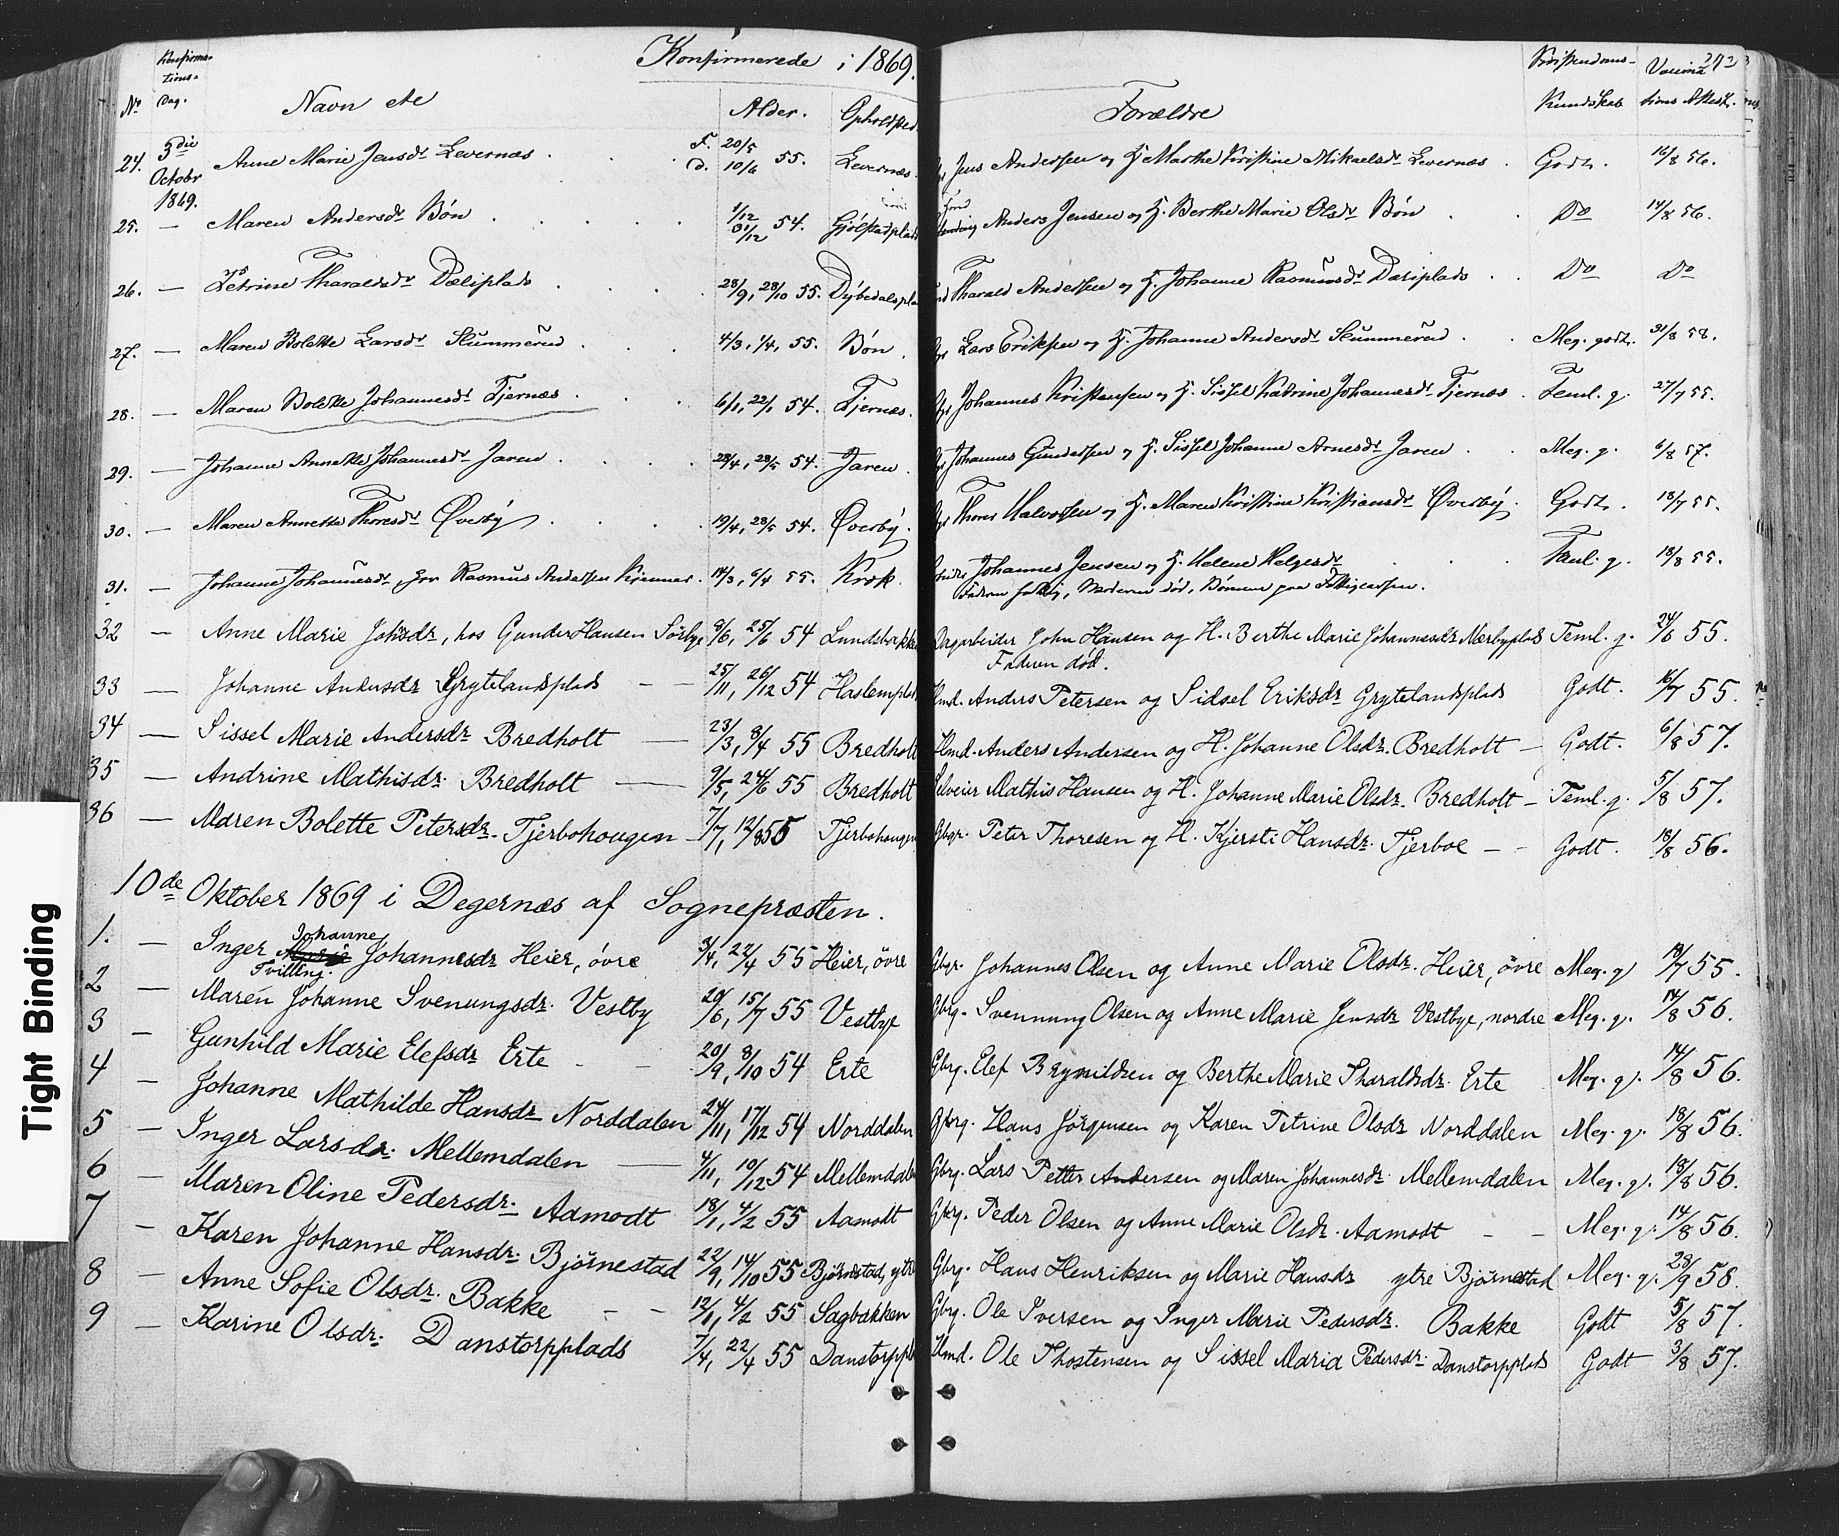 Konfirmerede i 1869. 273
Nr. Konfirmations-Dag. Navn etc Alder. Opholdsted Forældre Kristendoms-Kundskab Vaccinations Attest.
24. 3die Octobr 1869. Anne Marie Jensdr Levernæs F. 20/5 d. 10/6 55. Levernæs. Jens Andersen og H. Marthe Kristine Mikaelsdr Levernæs. Godt. 16/8 56.
25. — Maren Andersdr Bön 1/12 31/12 54. Gjölstadplads Anders Jensen og H. Berthe Marie Olsdr Bön Do 14/8 56.
26. — Petrine Tharaldsdr Dæliplads 28/9, 28/10 55. Dybedalspla Tharald Andersen og H. Johanne Rasmusdr Dæliplads Do Do
27. — Maren Bolette Larsdr Skummerud 4/3, 1/4, 55. Bön. Lars Eriksen og H. Johanne Andersdr Skummerud Meg. godt. 31/8 58.
28. — Maren Bolette Johannesdr Tjernæs 6/1, 22/1 54. Tjernæs. Johannes Kristensen og H. Sissel Katrine Johannesdr Tjernæs Teml. g. 27/7 55.
29. — Johanne Annette Johannesdr Jaren 28/4, 28/5 54. Jaren. Johannes Gundersen og H. Sissel Johanne Arnesdr Jaren Meg. g. 6/8 57.
30. — Maren Annette Thoresdr Øverby 19/4, 28/5 54. Øverby. Thores Halvorsen og H. Maren Kristine Kristiansdr Øverby. Godt. 18/7 55.
31. — Johanne Johannesdr, hos Rasmus Andersen Krömmer. 14/3, 9/4 55. Krok. Johannes Jensen og H. Helene Helgesdr Teml. g. 18/8 55.
Moderen død, Börnene paa Fattigcassen.
32 — Anne Marie Johsdr, hos Gunder Hansen Sörbye 8/6, 25/6 54 Lundsbakke Dagarbeider John Hansen og H. Berthe Marie Johannesdr Nærbyplads Teml. g. 24/6 55.
Faderen död.
33 — Johanne Andersdr Grytelandsplads — 25/11, 26/12 54 Haslemplad Hmd. Anders Petersen og Sidsel Eriksdr Grytelandsplads Godt. 16/7 55.
34 — Sissel Marie Andersdr Bredholt — 23/3, 8/4 55 Bredholt Hmd. Anders Andersen og H. Johanne Olsdr. Bredholt — Godt. 6/8 57.
35 — Andrine Mathisdr. Bredholt — 9/5, 24/6 55 Bredholt Selveier Mathis Hansen og H. Johanne Marie Olsdr. Bredholt — Teml. g. 5/8 57.
36 — Maren Bolette Petersdr. Tjerbohougen — 7/7, 12/8 55 Tjerbohougen Gbgr. Peter Thoresen og H. Kjersti Hansdr. Tjerboe — — Godt. 18/8 56.
10de Oktober 1869 i Degernæs af Sognepræsten.
1. — Inger Johanne Johannesdr Heier, övre 3/4, 22/4 55 Heier, övre Gbgr. Johannes Olsen og Anne Marie Olsdr. Heier, övre Meg. g 19/7 55.
Tvilling.
2 — Maren Johanne Svenungsdr. Vestby 20/6, 15/7 55 Vestbye Gbrg. Svennung Olsen og Anne Marie Jensdr Vestbye, nordre Meg. g. 14/8 56.
3 Gunhild Marie Elefsdr Erte — — 20/9, 8/10 54 Erte Gbrg. Elef Brynildsen og Berthe Marie Tharaldsdr. Erte Meg. g. 14/8 56.
4 — Johanne Mathilde Hansdr Norddalen 24/11, 17/12 54 Norddalen Gbrg. Hans Jörgensen og Karen Petrine Olsdr Norddalen Meg. g. 18/8 56.
5 — Inger Larsdr. Mellemdalen — 4/11, 10/12 54 Mellemdalen Gbrg. Lars Petter Andersen og Maren Johannesdr. Mellemdalen Meg. g. 18/8 56.
6 — Maren Oline Pedersdr. Aamodt 18/1, 4/2 55 Aamodt Gbrg. Peder Olsen og Anne Marie Olsdr. Aamodt — — Meg. g. 14/8 56.
7 — Karen Johanne Hansdr. Bjørnestad 22/9, 14/10 55 Bjørnestad, ytre Gbrg. Hans Henriksen og Marie Hansdr ytre Bjørnestad Meg. g. 28/9 58.
8 — Anne Sofie Olsdr. Bakke — — 12/1, 4/2 55 Sagbakken Gbrg. Ole Iversen og Inger Marie Pedersdr. Bakke Godt 5/8 57.
9 — Karine Olsdr. Danstorpplads 7/4, 22/4 55 Danstorppl Hmd. Ole Thostensen og Sissel Maria Pedersdr. Danstorpplads Godt 3/8 57.
Tight Binding